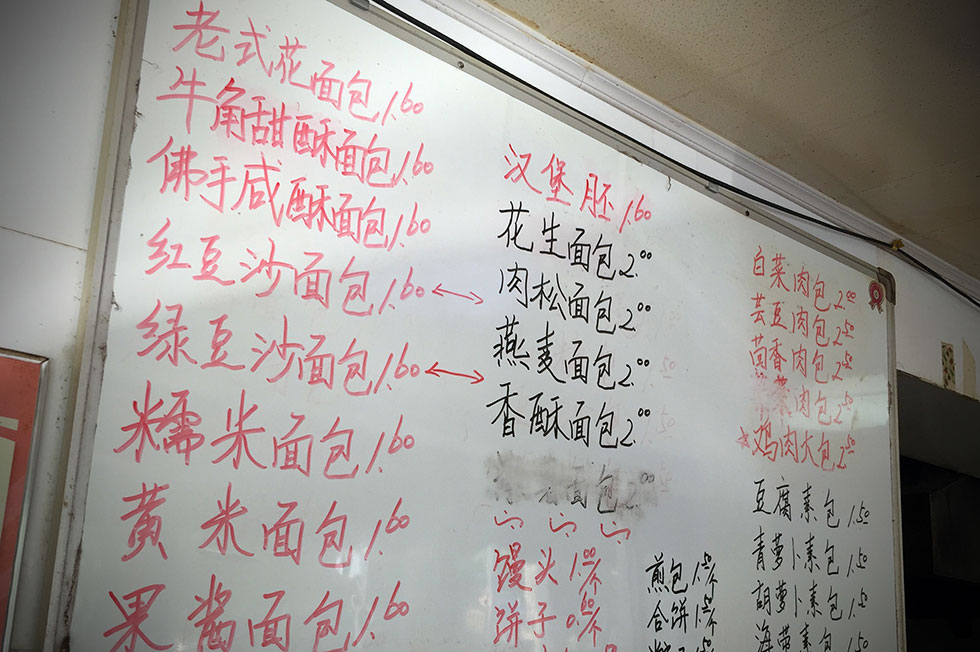 老式花面包 1.60
牛角甜酥面包 1.60
佛手咸酥面包 1.60
红豆沙面包 1.60
绿豆沙面包 1.60
糯米面包 1.60
黄米面包 1.60
果酱面包 1.60
汉堡胚 1.60
花生面包 2.00
肉松面包 2.00
燕麦面包 2.00
香酥面包 2.00
面包 2.00
馒头 1.00/个
饼子 0.60/个
煎包 1.50/个
合饼 1.50/个
白菜肉包 2.00
芸豆肉包 2.50
茴香肉包 2.50
菜肉包 2.50
鸡肉大包 2.50
豆腐素包 1.50
青萝卜素包 1.50
胡萝卜素包 1.50
海带素包